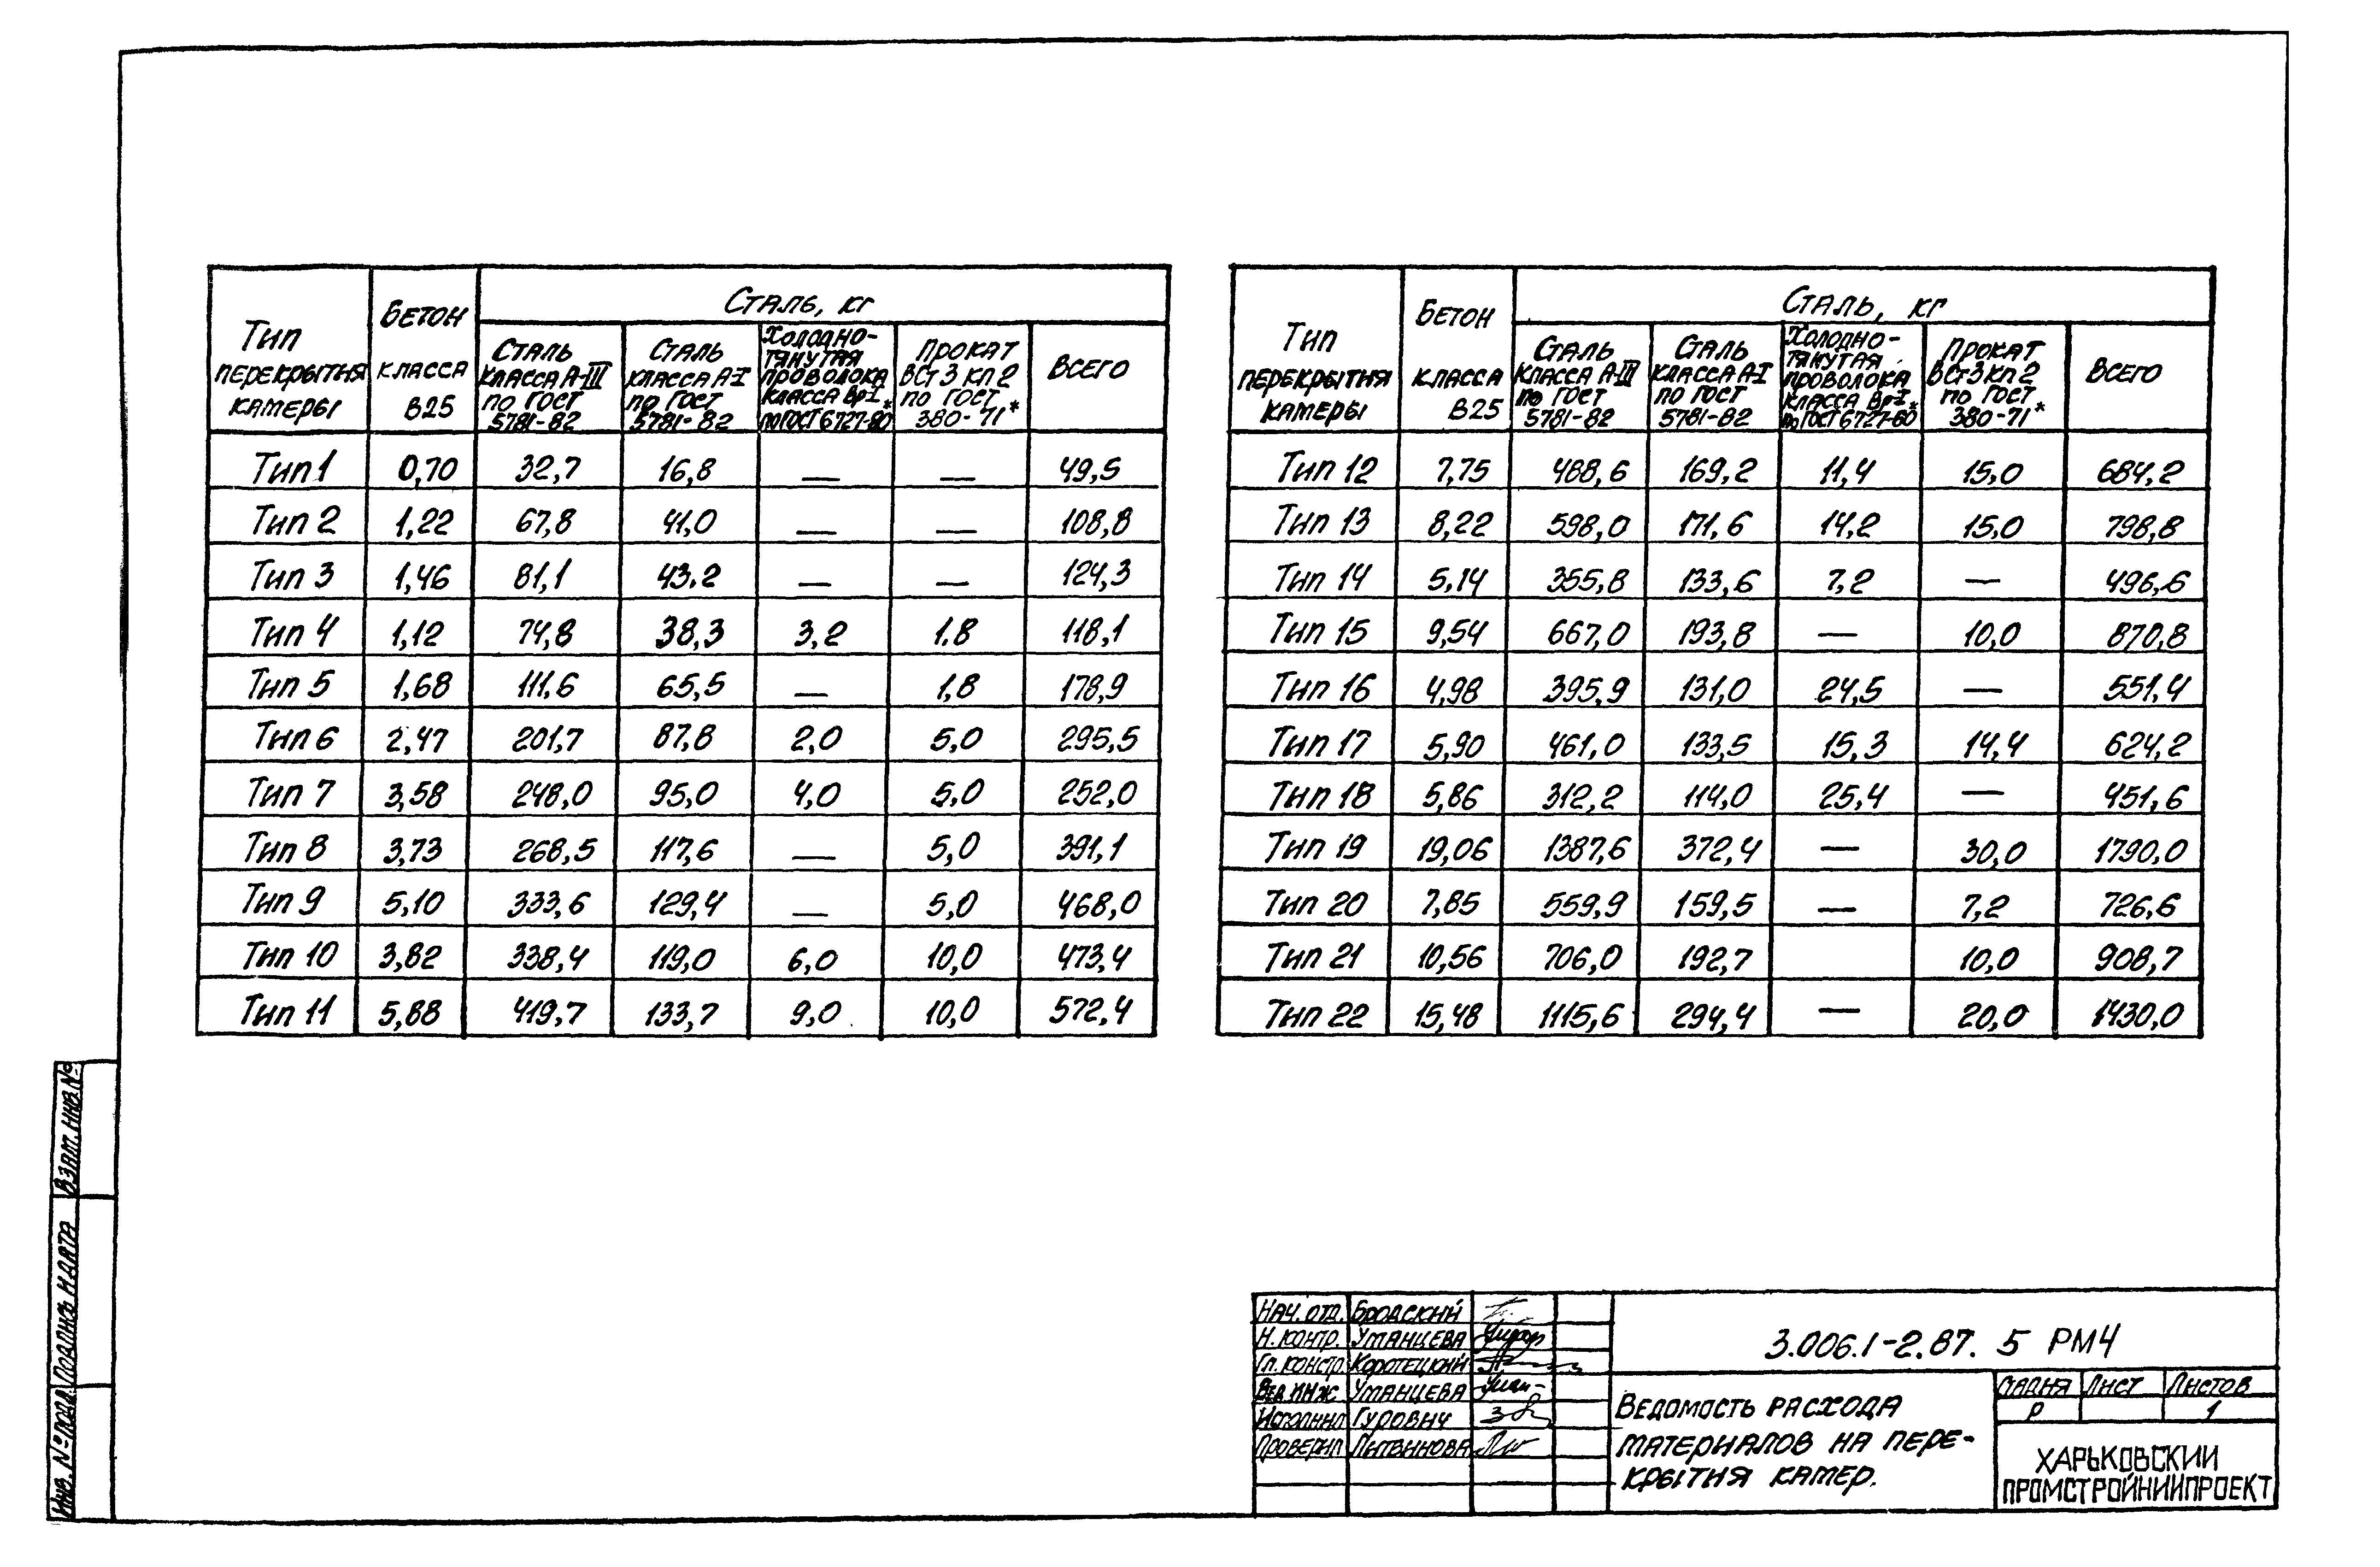 Тип перекрытия камеры | Бетон класса В25 | Сталь, кг
Сталь класса А-III по ГОСТ 5781-82 | Сталь класса А-I по ГОСТ 5781-82 | Холодно-тянутая проволока класса Вр-I по ГОСТ 6727-80* | Прокат ВСт 3 кп 2 по ГОСТ 380-71* | Всего
Тип 1 | 0,70 | 32,7 | 16,8 | — | — | 49,5
Тип 2 | 1,22 | 67,8 | 41,0 | — | — | 108,8
Тип 3 | 1,46 | 81,1 | 43,2 | — | — | 124,3
Тип 4 | 1,12 | 74,8 | 38,3 | 3,2 | 1,8 | 118,1
Тип 5 | 1,68 | 111,6 | 65,5 | — | 1,8 | 178,9
Тип 6 | 2,47 | 201,7 | 87,8 | 2,0 | 5,0 | 295,5
Тип 7 | 3,58 | 248,0 | 95,0 | 4,0 | 5,0 | 252,0
Тип 8 | 3,73 | 268,5 | 117,6 | — | 5,0 | 391,1
Тип 9 | 5,10 | 333,6 | 129,4 | — | 5,0 | 468,0
Тип 10 | 3,82 | 338,4 | 119,0 | 6,0 | 10,0 | 473,4
Тип 11 | 5,88 | 419,7 | 133,7 | 9,0 | 10,0 | 572,4
Тип перекрытия камеры | Бетон класса В25 | Сталь, кг
Сталь класса А-III по ГОСТ 5781-82 | Сталь класса А-I по ГОСТ 5781-82 | Холодно-тянутая проволока класса Вр-I по ГОСТ 6727-80* | Прокат ВСт 3 кп 2 по ГОСТ 380-71* | Всего
Тип 12 | 7,75 | 488,6 | 169,2 | 11,4 | 15,0 | 684,2
Тип 13 | 8,22 | 598,0 | 171,6 | 14,2 | 15,0 | 798,8
Тип 14 | 5,14 | 355,8 | 133,6 | 7,2 | — | 496,6
Тип 15 | 9,54 | 667,0 | 193,8 | — | 10,0 | 870,8
Тип 16 | 4,98 | 395,9 | 131,0 | 24,5 | — | 551,4
Тип 17 | 5,90 | 461,0 | 133,5 | 15,3 | 14,4 | 624,2
Тип 18 | 5,86 | 312,2 | 114,0 | 25,4 | — | 451,6
Тип 19 | 19,06 | 1387,6 | 372,4 | — | 30,0 | 1790,0
Тип 20 | 7,85 | 559,9 | 159,5 | — | 7,2 | 726,6
Тип 21 | 10,56 | 706,0 | 192,7 | 10,0 | 908,7
Тип 22 | 15,48 | 1115,6 | 294,4 | — | 20,0 | 1430,0
Взам. инв. №
Подпись и дата
Инв. № подл.
Нач. отд. Бродский
Н. контр. Уманцева
Гл. констр. Коротецкий
Вед. инж. Уманцева
Исполнил Гурович
Проверил Литвинова
3.006.1-2.87. 5 РМ4
Ведомость расхода
материалов на пере-
крытия камер.
Стадия Лист Листов
Р 1
ХАРЬКОВСКИЙ
ПРОМСТРОЙНИИПРОЕКТ